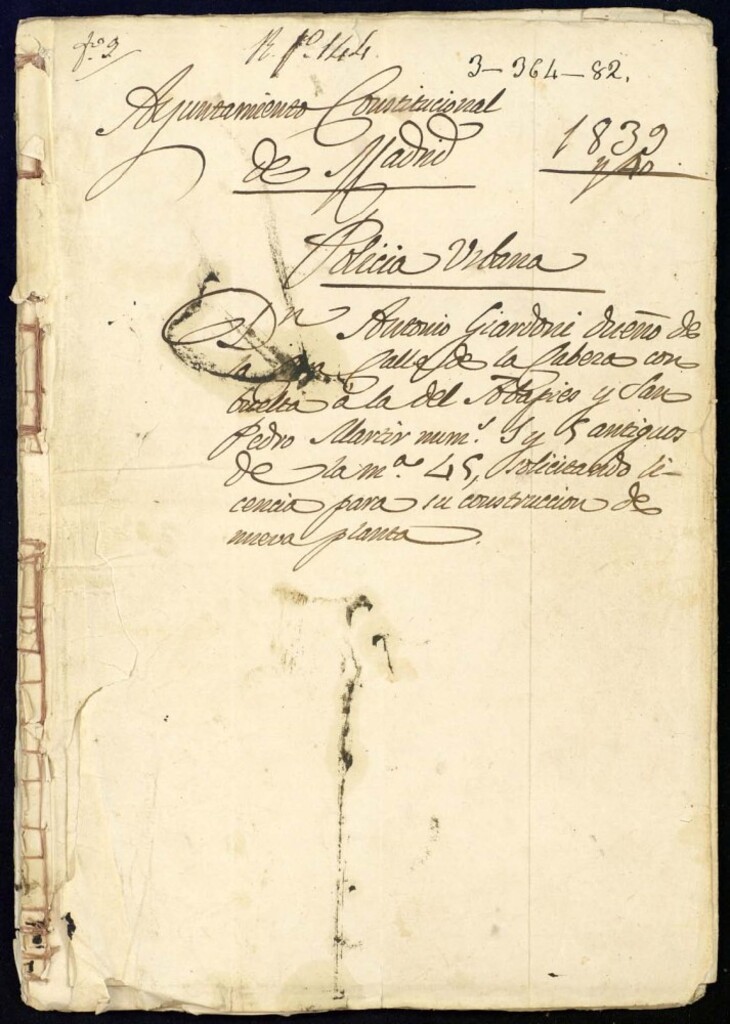 R. fº 144
3-364-82.
Ayuntamiento Constitucional
de Madrid
1839
y 40
Policia Urbana
Dn Antonio Giardoni dueño de
la Calle de la Cabeza con
buelta á la del Abapies y San
Pedro Martir num.s y 5 antiguos
de la m.a 45, solicitando li-
cencia para su construccion de
nueva planta.